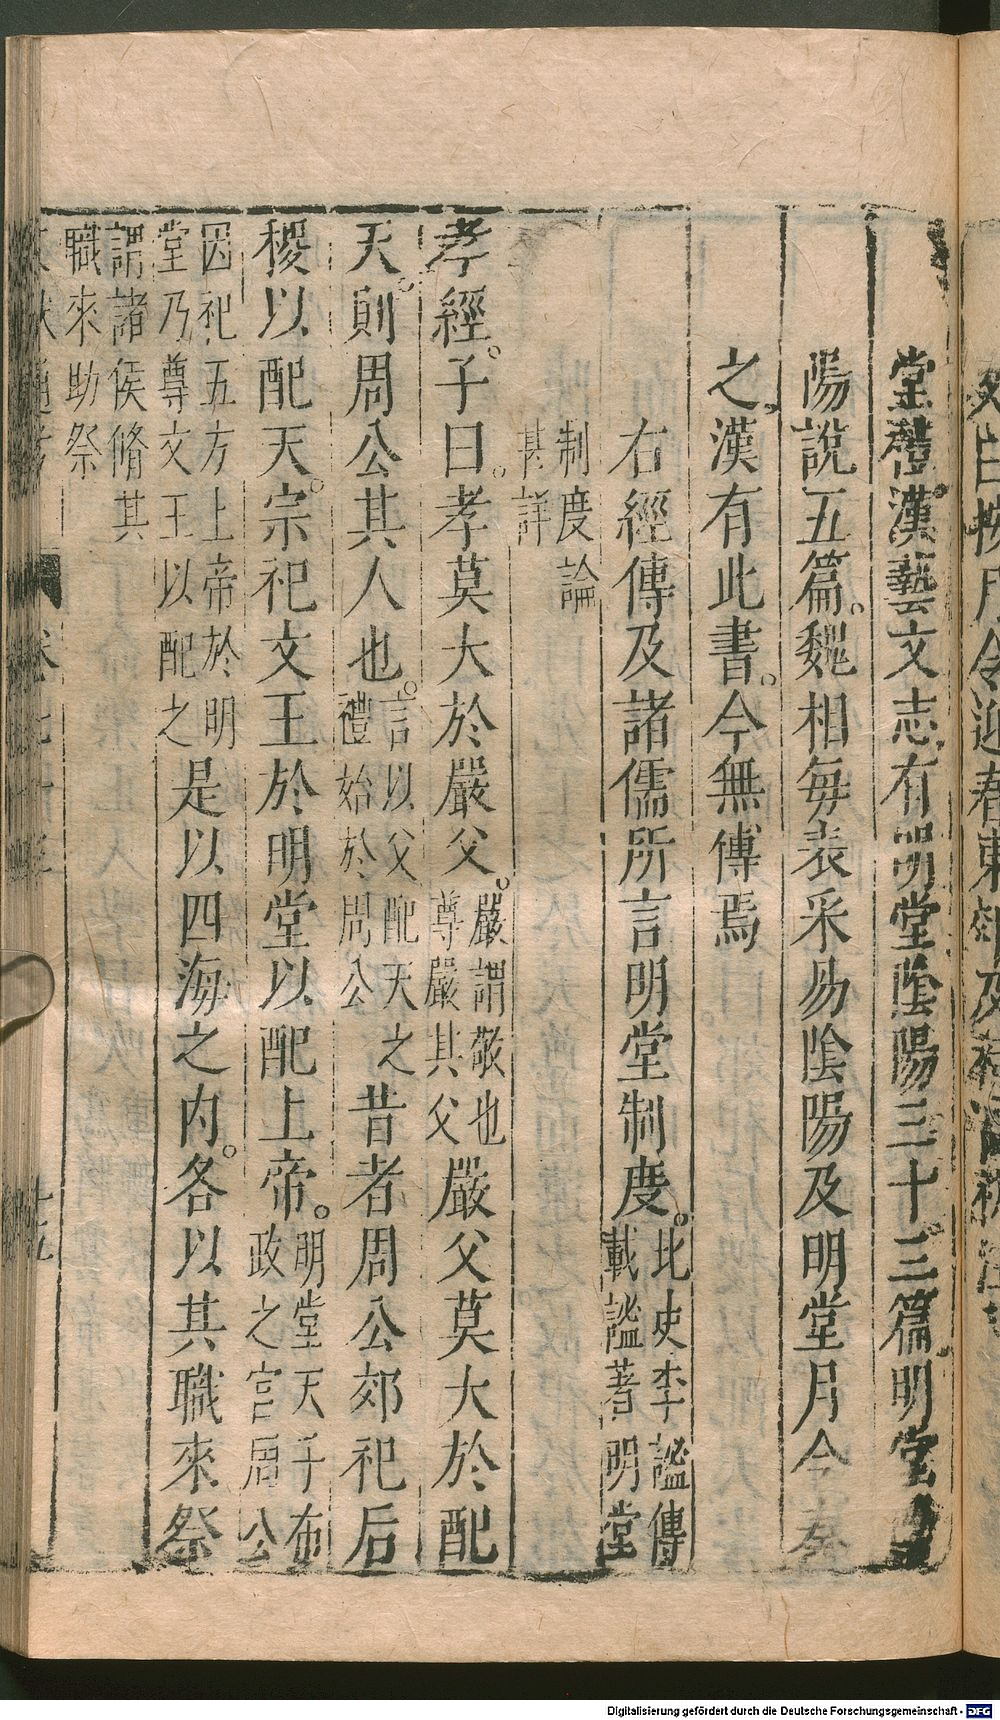 堂禮漢藝文志有明堂陰陽三十三篇明堂
陽說五篇。魏相每表采易陰陽及明堂月令奏
之漢有此書。今無傳焉
右經傳及諸儒所言明堂制度。北史李謐傳載謐著明堂
制度論甚詳
孝經。子曰。孝莫大於嚴父。嚴謂敬也尊嚴其父嚴父莫大於配
天。則周公其人也。言以父配天之禮始於周公昔者周公郊祀后
稷以配天。宗祀文王於明堂以配上帝。明堂天子布政之宮周公
因祀五方上帝於明堂乃尊文王以配之是以四海之內。各以其職來祭
謂諸侯脩其職來助祭
Digitalisierung gefördert durch die Deutsche Forschungsgemeinschaft - DFG